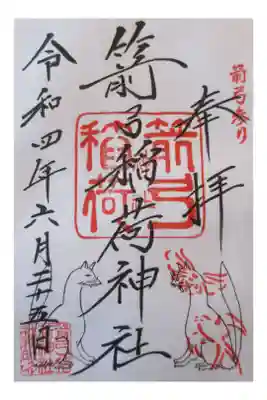 箭弓参り
奉拝
箭弓
稲荷
箭弓稲荷神社
令和四年六月二十五日